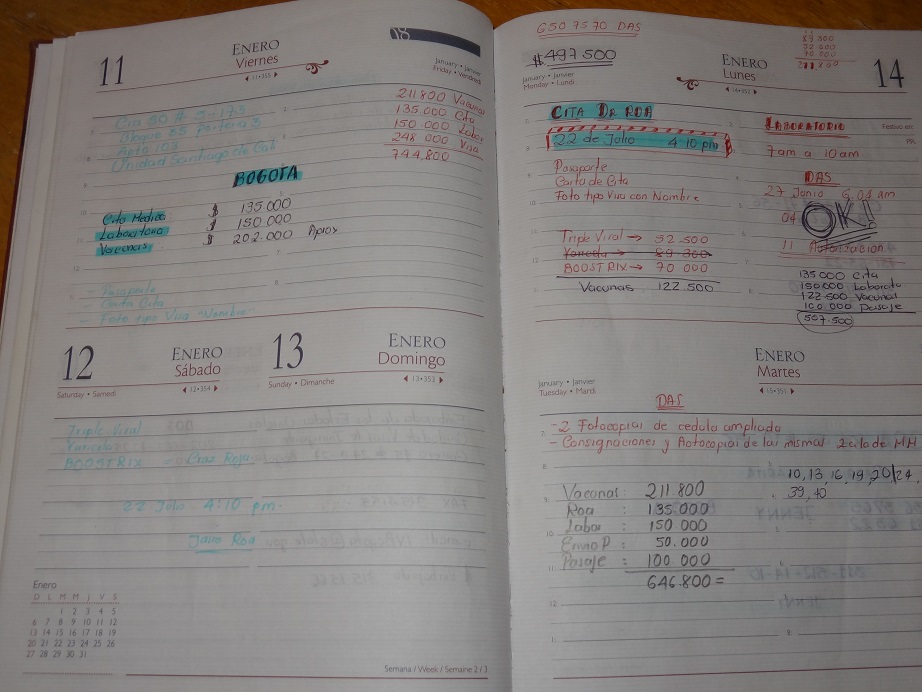 11
ENERO
Viernes
◀ 11•355 ▶
January • Janvier
Friday • Vendredi
211.800 Vacunas
135.000 Cita
150.000 Labor
248.000 Visa
744.800
Apto 103
Unidad Santiago de Cali
BOGOTA
Cita Medica $ 135.000
Laboratorio $ 150.000
Vacunas $ 202.000 Aprox
- Pasaporte
- Carta Cita
- Foto tipo Visa "Nombre"
12
ENERO
Sábado
Saturday • Samedi
◀ 12•354 ▶
13
ENERO
Domingo
Sunday • Dimanche
◀ 13•353 ▶
Triple Viral
Varicela
BOOSTRIX = Cruz Roja
22 Julio 4:10 pm.
Julio Roa
Enero
D L M M J V S
1 2 3 4 5
6 7 8 9 10 11 12
13 14 15 16 17 18 19
20 21 22 23 24 25 26
27 28 29 30 31
Semana / Week / Semaine 2 / 3
6507570 DAS
#497.500
January • Janvier
Monday • Lundi
ENERO
Lunes
◀ 14•352 ▶
14
CITA DR ROA
22 de Julio 4:10 pm
Pasaporte
Carta de Cita
Foto tipo Visa con Nombre
Triple Viral → 52.500
Varicela → 89.300
BOOSTRIX → 70 000
Vacunas 122.500
LABORATORIO
7am a 10am
DAS
27 Junio
OK!!
11 Autorizacion
135000 Cita
150.000 Laborato
122.500 Vacunas
100.000 Pasaje
507.500
January • Janvier
Tuesday • Mardi
ENERO
Martes
◀ 15•351 ▶
DAS
- 2 Fotocopias de cedula ampliada
- Consignaciones y Fotocopias de las mismas
10, 13, 16, 19, 20/24,
39, 40
Vacunas: 211.800
Roa : 135.000
Labor : 150 000
Envio P : 50.000
Pasaje : 100 000
646.800=